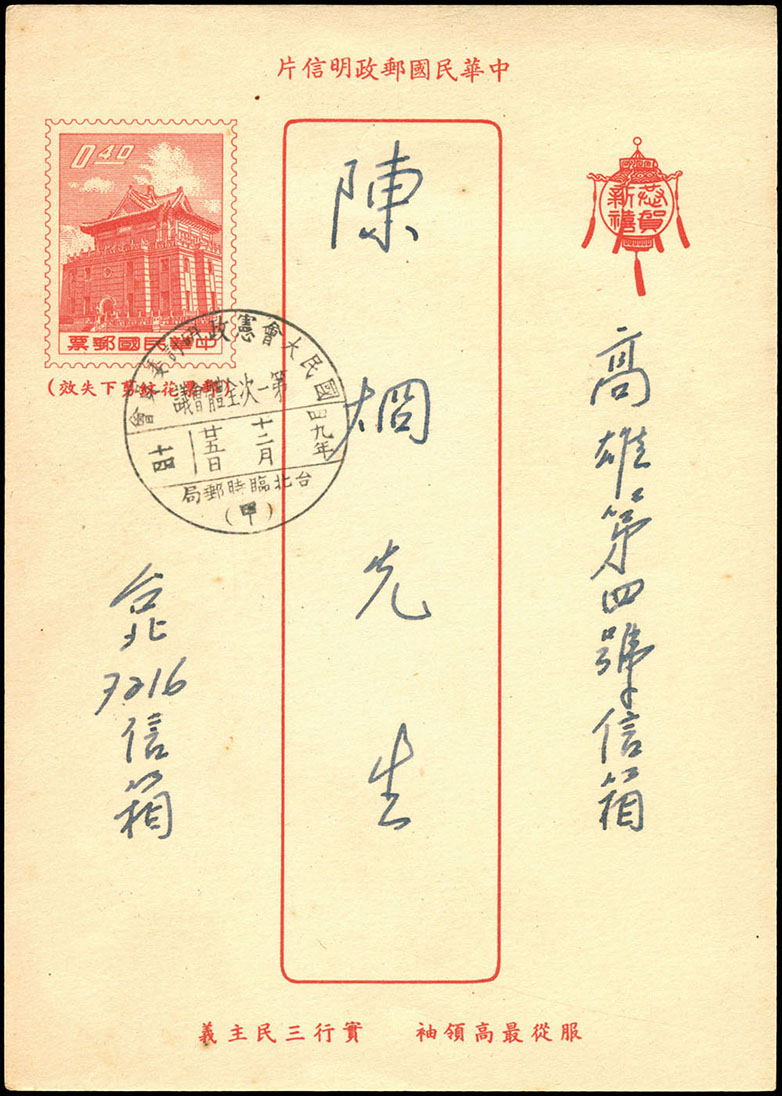 中華民國郵政明信片
恭賀
新禧
高雄第四號信箱
陳
先生
0.40
中華民國郵票
花紋剪下失效)
國民大會憲政
第一次全體會議
四九年
十二月
廿五日
十四
台北臨時郵局
(甲)
台北7216信箱
服從最高領袖 實行三民主義